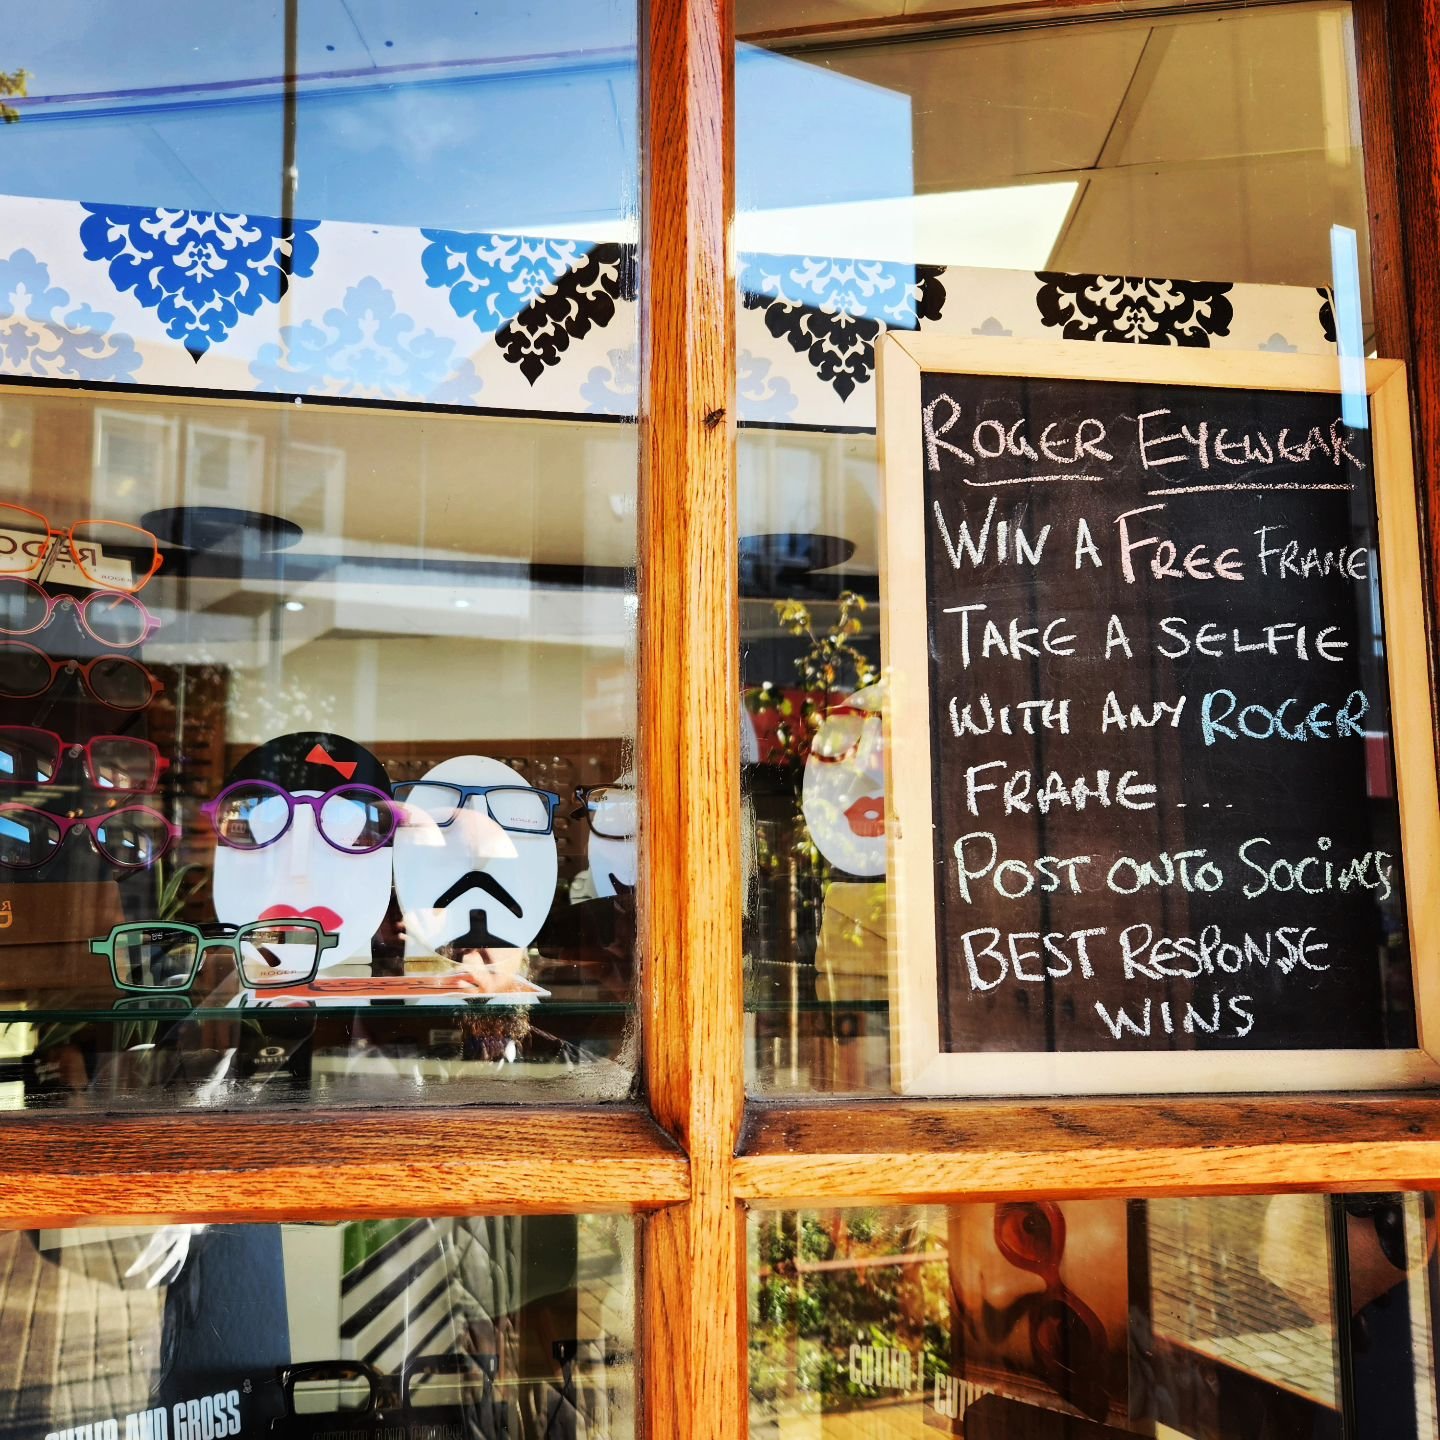 ROGER EYEWEAR
WIN A FREE FRAME
TAKE A SELFIE
WITH ANY ROGER
FRAME...
POST ONTO SOCiALS
BEST RESPONSE
WINS
ROGER
ROGER
ROGER
OAKLEY
CUTLER AND GROSS
CUTLER AND GROSS
CUTLER